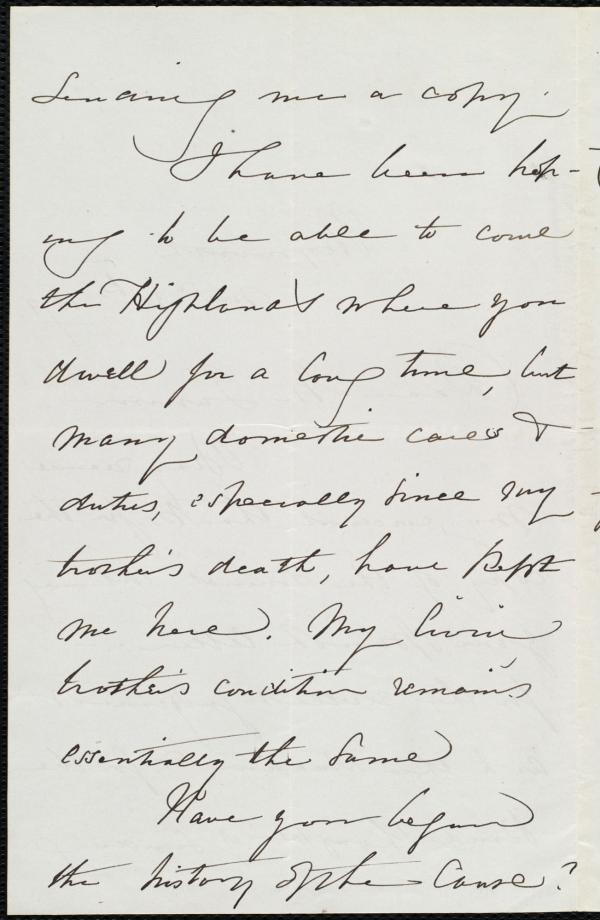 sending me a copy.
I have been hop-
ing to be able to come
the Highlands where you
dwell for a long time, but
many domestic cares &
duties, especially since my
brother's death, have kept
me here. My livin
brother's condition remains
essentially the same
Have you begun
the history of the Cause?